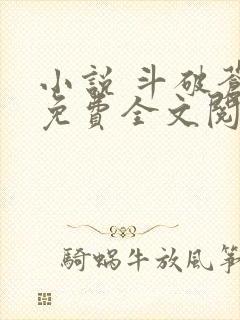 小說 斗破蒼
免費全文閱
騎蝸牛放風箏